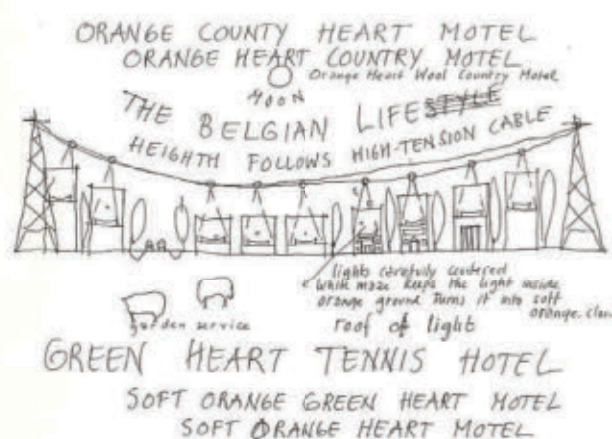 ORANGE COUNTY HEART MOTEL
ORANGE HEART COUNTRY MOTEL
Orange Heart Wool Country Motel
MOON
THE BELGIAN LIFESTYLE
HEIGHTH FOLLOWS HIGH-TENSION CABLE
lights carefully centered
white maze keeps the light inside
orange ground turns it into soft
orange cloud
garden service
roof of light
GREEN HEART TENNIS HOTEL
SOFT ORANGE GREEN HEART MOTEL
SOFT ORANGE HEART MOTEL